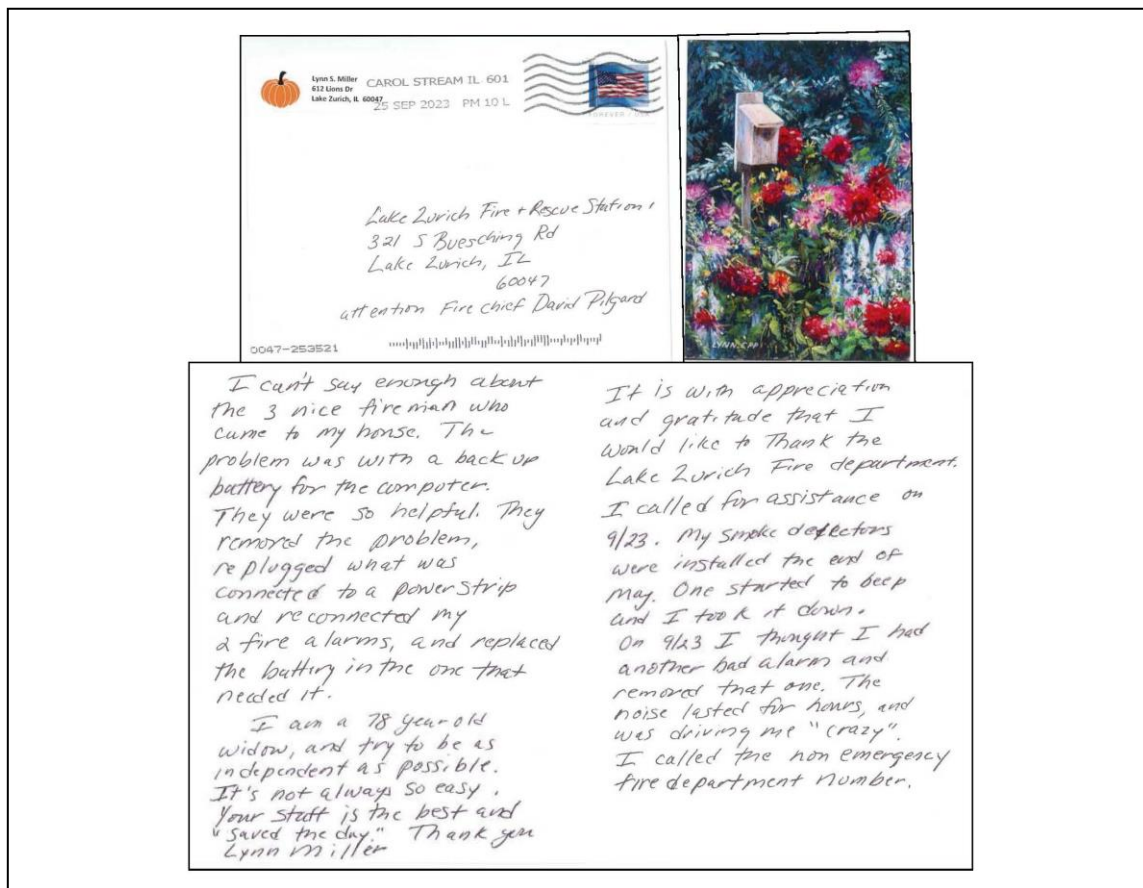 Lynn S. Miller
612 Lions Dr
Lake Zurich, IL 60047
CAROL STREAM IL 601
25 SEP 2023 PM 10 L
FOREVER / USA
Lake Zurich Fire + Rescue Station 1
321 S Buesching Rd
Lake Zurich, IL
60047
attention Fire chief David Pilgard
0047-253521
LYNN.CPP
I can't say enough about
the 3 nice fireman who
came to my house. The
problem was with a back up
battery for the computer.
They were so helpful. They
removed the problem,
replugged what was
connected to a power strip
and reconnected my
2 fire alarms, and replaced
the battery in the one that
needed it.
I am a 78 year old
widow, and try to be as
independent as possible.
It's not always so easy.
Your staff is the best and
"saved the day." Thank you
Lynn Miller
It is with appreciation
and gratitude that I
would like to Thank the
Lake Zurich Fire department.
I called for assistance on
9/23. My smoke detectors
were installed the end of
may. One started to beep
and I took it down.
On 9/23 I thought I had
another bad alarm and
removed that one. The
noise lasted for hours, and
was driving me "crazy".
I called the non emergency
fire department number.